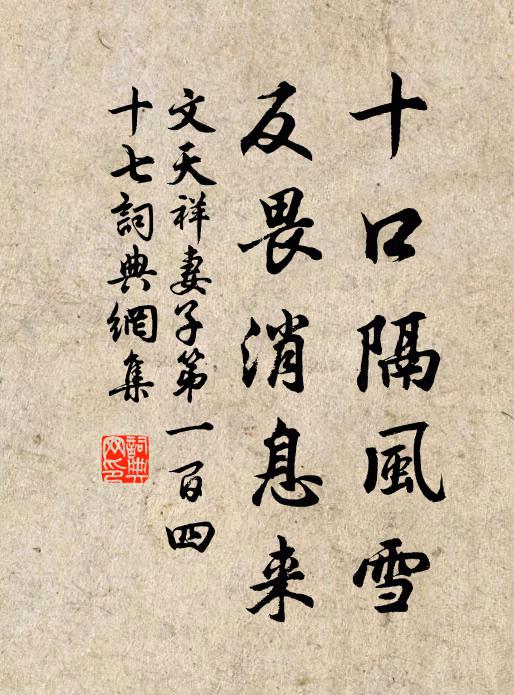 十口隔風雪
反畏消息来
文天祥妻子第一百四
十七詞典網集
詞典网印